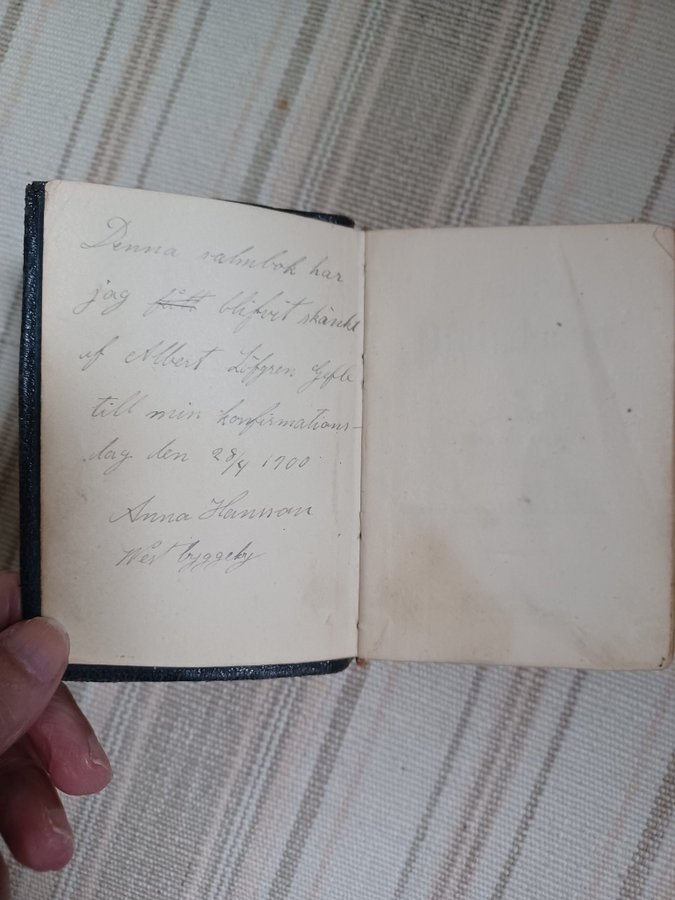 Denna salmbok har
jag fått blifvit skänkt
af Albert Löfgren Gefle
till min konfirmations-
dag den 28/4 1900
Anna Hansson
West byggeby